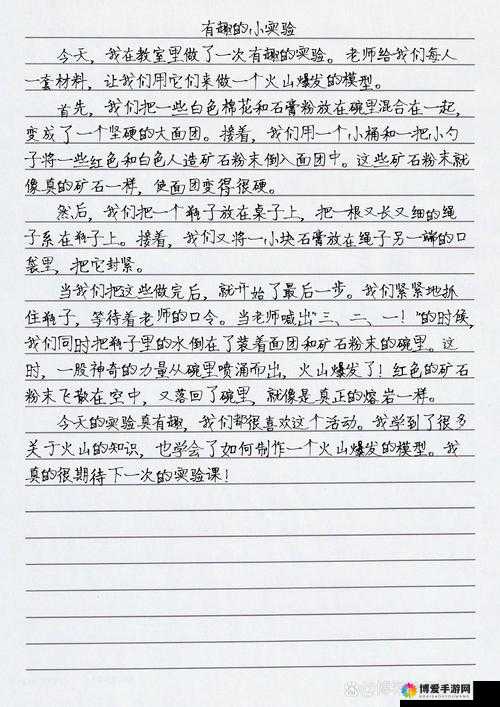 有趣的小实验
今天，我在教室里做了一次有趣的实验。老师给我们每人
一套材料，让我们用它们来做一个火山爆发的模型。
首先，我们把一些白色棉花和石膏粉放在碗里混合在一起，
变成了一个坚硬的大面团。接着，我们用一个小桶和一把小勺
子将一些红色和白色人造矿石粉末倒入面团中。这些矿石粉末就
像真的矿石一样，使面团变得很硬。
然后，我们把一个瓶子放在桌子上，把一根又长又细的绳
子系在瓶子上。接着，我们又将一小块石膏放在绳子另一端的口
袋里，把它封紧。
当我们把这些做完后，就开始了最后一步。我们紧紧地抓
住瓶子，等待着老师的口令。当老师喊出“三、二、一！”的时候，
我们同时把瓶子里的水倒在了装着面团和矿石粉末的碗里。这
时，一股神奇的力量从碗里喷涌而出，火山爆发了！红色的矿石
粉末飞散在空中，又落回了碗里，就像是真正的熔岩一样。
今天的实验真有趣，我们都很喜欢这个活动。我学到了很多
关于火山的知识，也学会了如何制作一个火山爆发的模型。我
真的很期待下一次的实验课！
博爱手游网